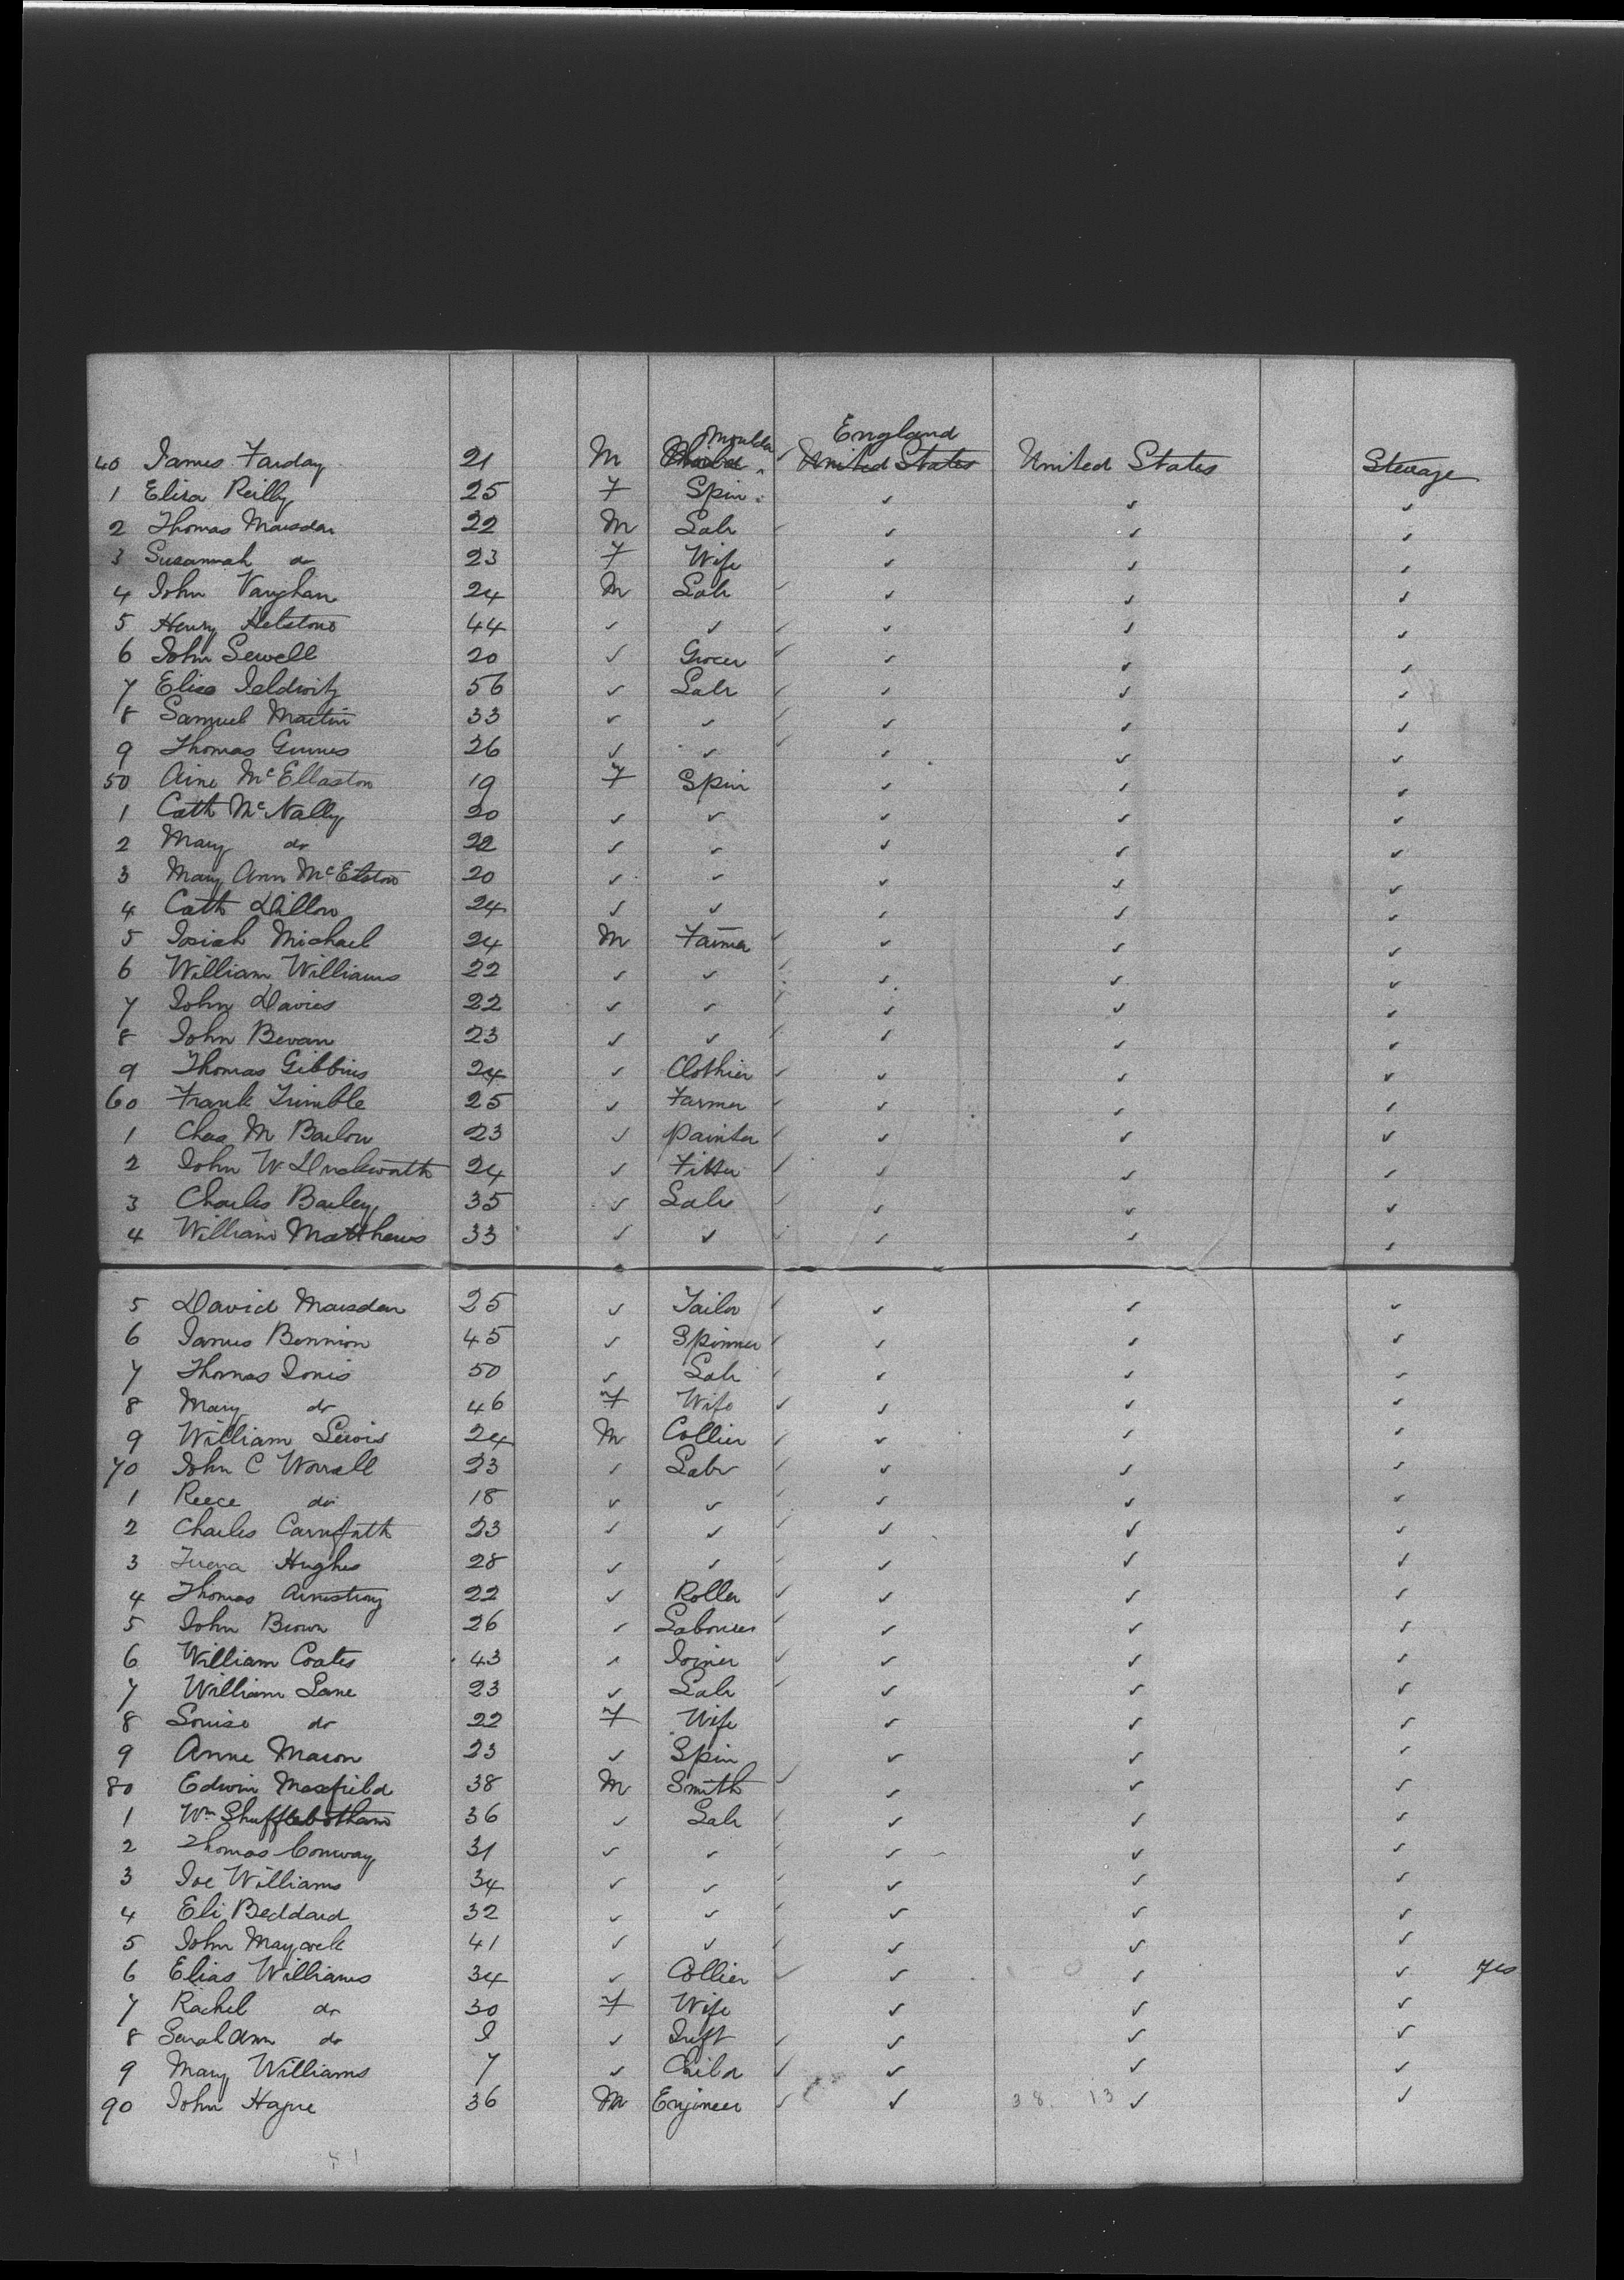 England
Moulder
40 James Farday 21 M United States United States Steerage
1 Eliza Reilly 25 F Spin
2 Thomas Marsden 22 M Labr ✓ ✓ ✓ ✓
3 Susannah do 23 F Wife ✓ ✓ ✓
4 John Vaughan 24 M Labr ✓ ✓ ✓ ✓
5 Henry 44 ✓ ✓ ✓ ✓ ✓ ✓
6 John Sewell 20 ✓ Grocer ✓ ✓ ✓ ✓
7 56 ✓ Labr ✓ ✓ ✓ ✓
8 Samuel Martin 33 ✓ ✓ ✓ ✓ ✓ ✓
9 Thomas 26 ✓ ✓ ✓ ✓ ✓ ✓
50 McEllaston 19 F Spin ✓ ✓ ✓
1 Cath McNally 20 ✓ ✓ ✓ ✓ ✓
2 Mary do 22 ✓ ✓ ✓ ✓ ✓
3 Mary Ann 20 ✓ ✓ ✓ ✓ ✓
4 Cath Dillon 24 ✓ ✓ ✓ ✓ ✓
5 Josiah Michael 24 M Farmer ✓ ✓ ✓ ✓
6 William Williams 22 ✓ ✓ ✓ ✓ ✓ ✓
7 John Davies 22 ✓ ✓ ✓ ✓ ✓ ✓
8 John Bevan 23 ✓ ✓ ✓ ✓ ✓ ✓
9 Thomas Gibbins 24 ✓ Clothier ✓ ✓ ✓ ✓
60 Frank Trimble 25 ✓ Farmer ✓ ✓ ✓ ✓
1 Chas M Barlow 23 ✓ Painter ✓ ✓ ✓ ✓
2 John W Duckworth 24 ✓ Fitter ✓ ✓ ✓ ✓
3 Charles Bailey 35 ✓ Labr ✓ ✓ ✓ ✓
4 William Matthews 33 ✓ ✓ ✓ ✓ ✓ ✓
5 David Marsden 25 ✓ Tailor ✓ ✓ ✓ ✓
6 James Bennion 45 ✓ Spinner ✓ ✓ ✓ ✓
7 Thomas Jones 50 ✓ Labr ✓ ✓ ✓ ✓
8 Mary do 46 F Wife ✓ ✓ ✓ ✓
9 William Lewis 24 M Collier ✓ ✓ ✓ ✓
70 John C Worrall 23 ✓ Labr ✓ ✓ ✓ ✓
1 Reece do 18 ✓ ✓ ✓ ✓ ✓ ✓
2 Charles 23 ✓ ✓ ✓ ✓ ✓ ✓
3 Hughes 28 ✓ ✓ ✓ ✓ ✓ ✓
4 Thomas Armstrong 22 ✓ Roller ✓ ✓ ✓ ✓
5 John Brown 26 ✓ Labourer ✓ ✓ ✓ ✓
6 William Coates 43 ✓ Joiner ✓ ✓ ✓ ✓
7 William Lane 23 ✓ Labr ✓ ✓ ✓ ✓
8 Louise do 22 F Wife ✓ ✓ ✓
9 Anne Mason 23 ✓ Spin ✓ ✓ ✓
80 Edwin Maxfield 38 M Smith ✓ ✓ ✓ ✓
1 Wm Shufflebotham 36 ✓ Labr ✓ ✓ ✓ ✓
2 Thomas Conway 31 ✓ ✓ ✓ ✓ ✓ ✓
3 Joe Williams 34 ✓ ✓ ✓ ✓ ✓ ✓
4 Eli Beddard 32 ✓ ✓ ✓ ✓ ✓ ✓
5 John Maycock 41 ✓ ✓ ✓ ✓ ✓ ✓
6 Elias Williams 34 ✓ Collier ✓ ✓ ✓ ✓ yes
7 Rachel do 30 F Wife ✓ ✓ ✓
8 Sarah Ann do ✓ Inft ✓ ✓ ✓ ✓
9 Mary Williams 7 ✓ Child ✓ ✓ ✓ ✓
90 John Hayne 36 M Engineer ✓ ✓ 38. 13 ✓ ✓